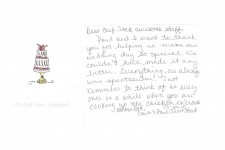 Dear Chef Jack awesome staff
Paul and I want to thank
you for helping us make our
wedding day so special. We
couldn't have made it any
better. Everything, as always
was spectacular! Just
remember to think of us every
once in a while when you are
cooking up the chicken